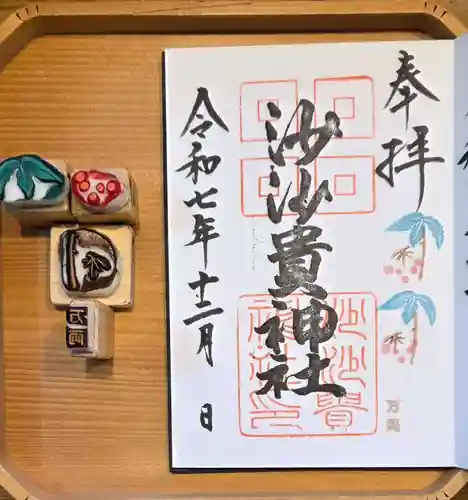 奉拝
沙沙貴神社
令和七年十二月 日
沙沙貴
神社印
万両